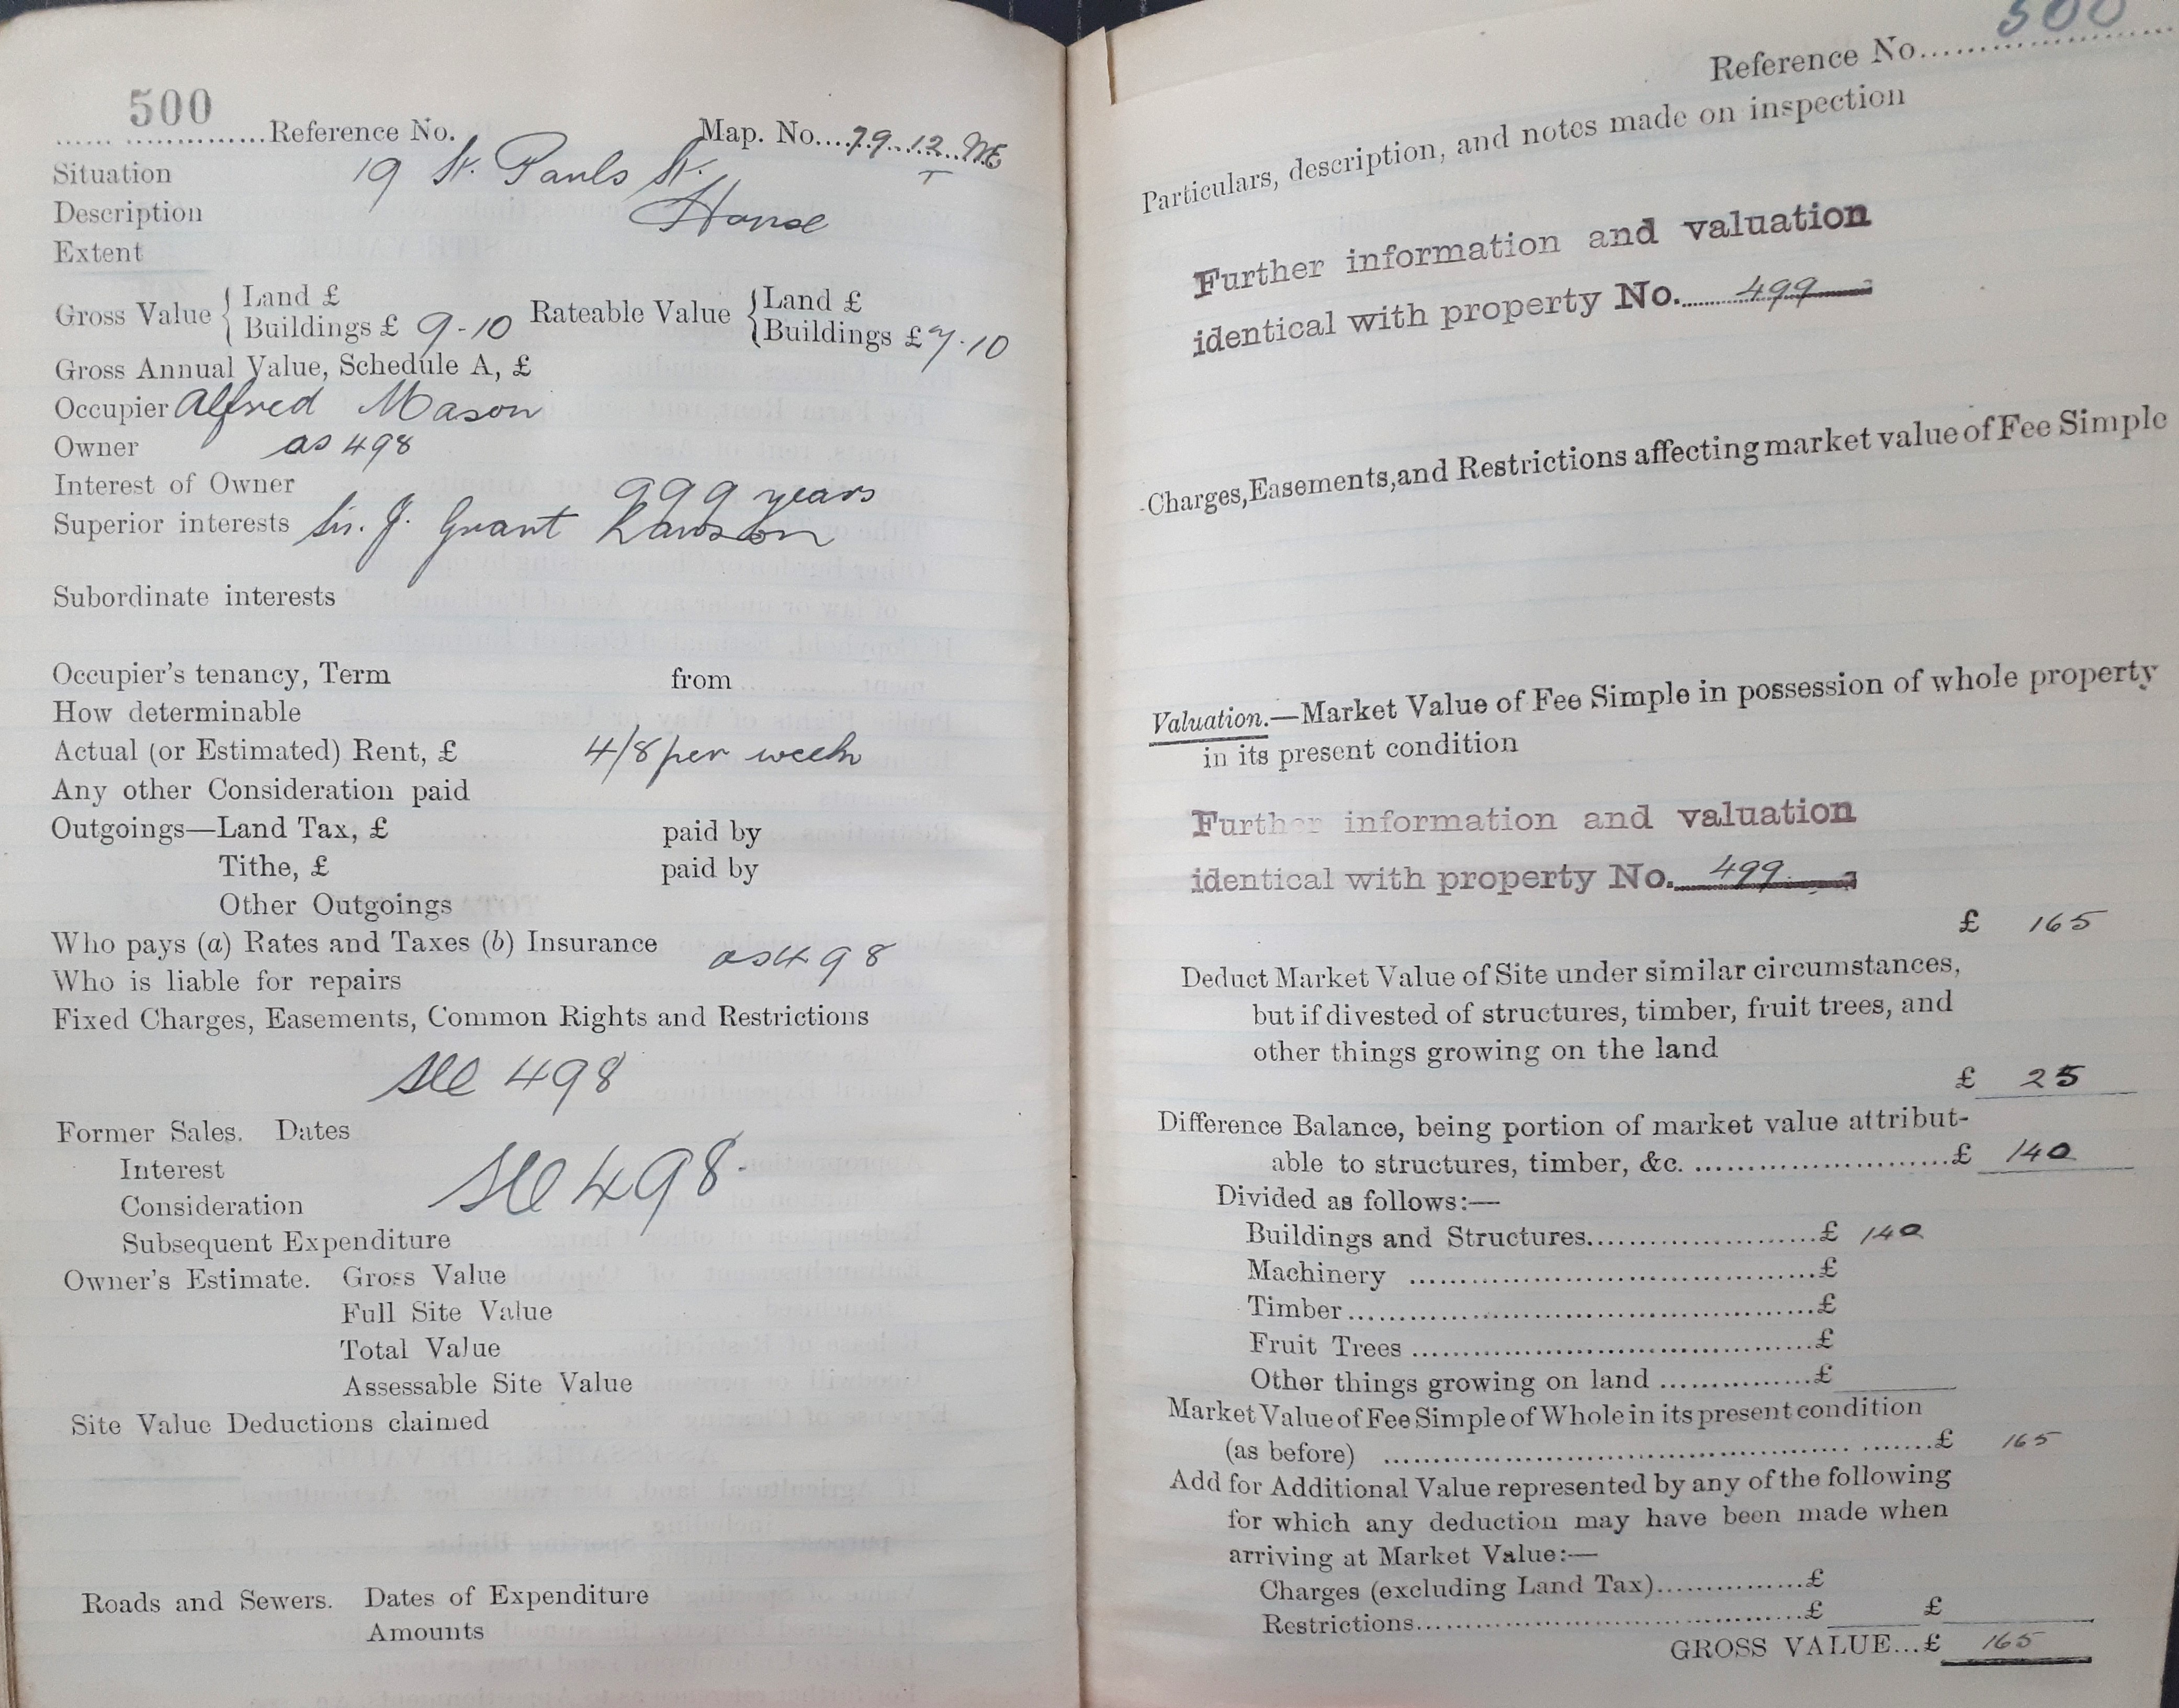 500
Reference No. Map. No. 79.12.NE
Situation 19 St. Pauls St.
Description House
Extent
Gross Value { Land £
Buildings £ 9-10
Rateable Value { Land £
Buildings £ 7.10
Gross Annual Value, Schedule A, £
Occupier Alfred Mason
Owner as 498
Interest of Owner 999 years
Superior interests Sir. J. Grant Lawson
Subordinate interests
Occupier's tenancy, Term from
How determinable
Actual (or Estimated) Rent, £ 4/8 per week
Any other Consideration paid
Outgoings—Land Tax, £ paid by
Tithe, £ paid by
Other Outgoings
Who pays (a) Rates and Taxes (b) Insurance as 498
Who is liable for repairs
Fixed Charges, Easements, Common Rights and Restrictions
See 498
Former Sales. Dates
Interest
Consideration See 498.
Subsequent Expenditure
Owner's Estimate. Gross Value
Full Site Value
Total Value
Assessable Site Value
Site Value Deductions claimed
Roads and Sewers. Dates of Expenditure
Amounts
Reference No. 500
Particulars, description, and notes made on inspection
Further information and valuation
identical with property No. 499
Charges, Easements, and Restrictions affecting market value of Fee Simple
Valuation.—Market Value of Fee Simple in possession of whole property
in its present condition
Further information and valuation
identical with property No. 499
£ 165
Deduct Market Value of Site under similar circumstances,
but if divested of structures, timber, fruit trees, and
other things growing on the land
£ 25
Difference Balance, being portion of market value attribut-
able to structures, timber, &c. £ 140
Divided as follows:—
Buildings and Structures £ 140
Machinery £
Timber £
Fruit Trees £
Other things growing on land £
Market Value of Fee Simple of Whole in its present condition
(as before) £ 165
Add for Additional Value represented by any of the following
for which any deduction may have been made when
arriving at Market Value:—
Charges (excluding Land Tax) £
Restrictions £ £
GROSS VALUE... £ 165